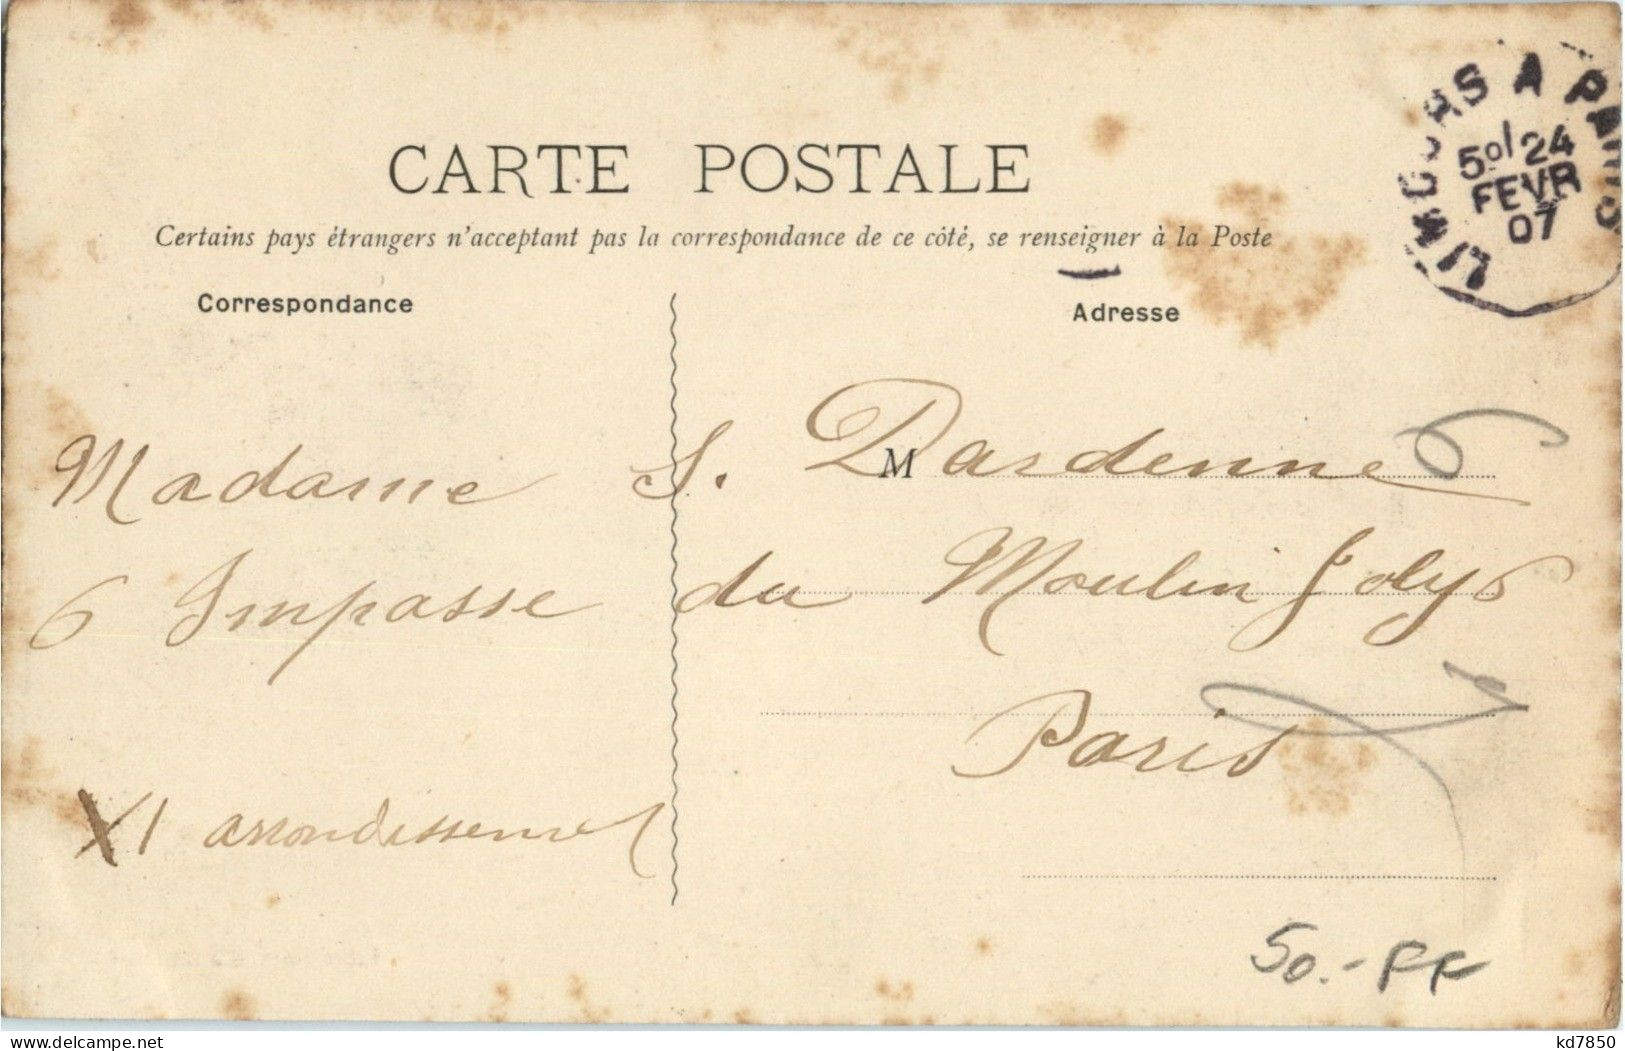 CARTE POSTALE
Certains pays étrangers n'acceptant pas la correspondance de ce côté, se renseigner à la Poste
LIMOURS A PARIS
50/ 24
FEVR
07
Correspondance
Adresse
M
Madame S. Dardenne
6 Impasse du Moulin Joly 6
Paris
XI arrondissement
50.- FF
delcampe.net
kd7850